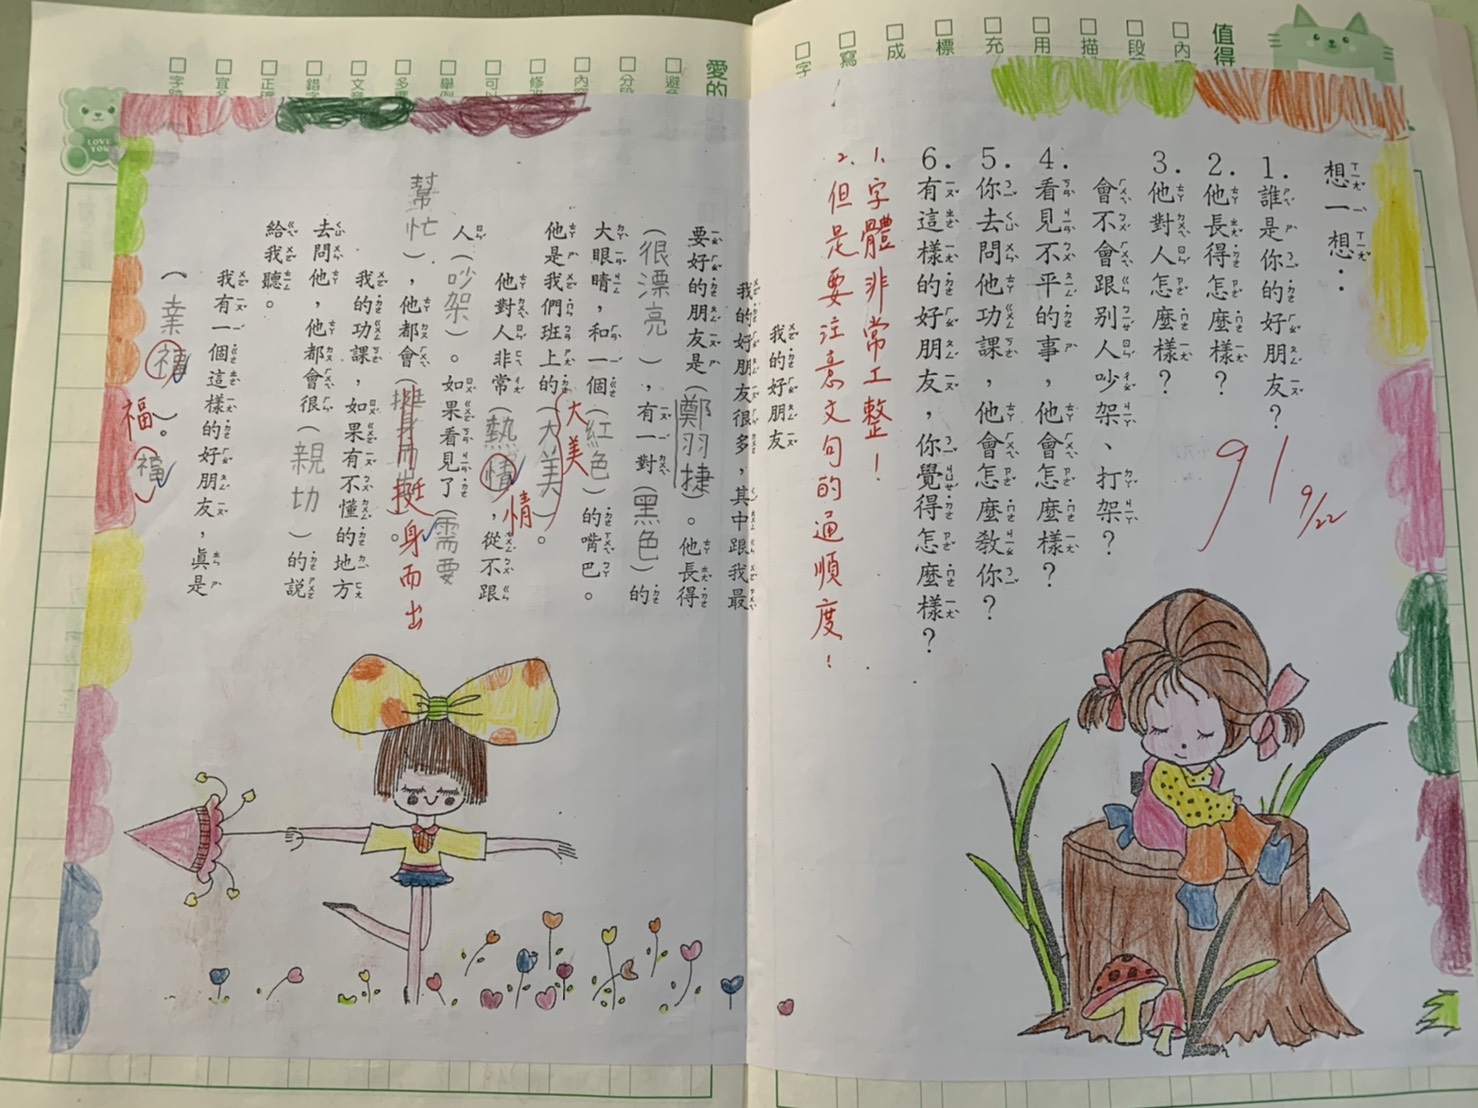 值得
愛的
想一想：
1.誰是你的好朋友？
2.他長得怎麼樣？
3.他對人怎麼樣？
會不會跟別人吵架、打架？
4.看見不平的事，他會怎麼樣？
5.你去問他功課，他會怎麼教你？
6.有這樣的好朋友，你覺得怎麼樣？
91 9/22
1.字體非常工整！
2.但是要注意文句的通順度！
我的好朋友
我的好朋友很多，其中跟我最
要好的朋友是（鄭羽捷）。他長得
（很漂亮），有一對（黑色）的
大眼睛，和一個（紅色）的嘴巴。
他是我們班上的（大美）。
大美
他對人非常（熱情），從不跟
情
人（吵架）。如果看見了（需要
幫忙），他都會（挺身而出）。
挺身而出
我的功課，如果有不懂的地方
去問他，他都會很（親切）的說
給我聽。
我有一個這樣的好朋友，真是
（幸福）。
福
福
LOVE YOU